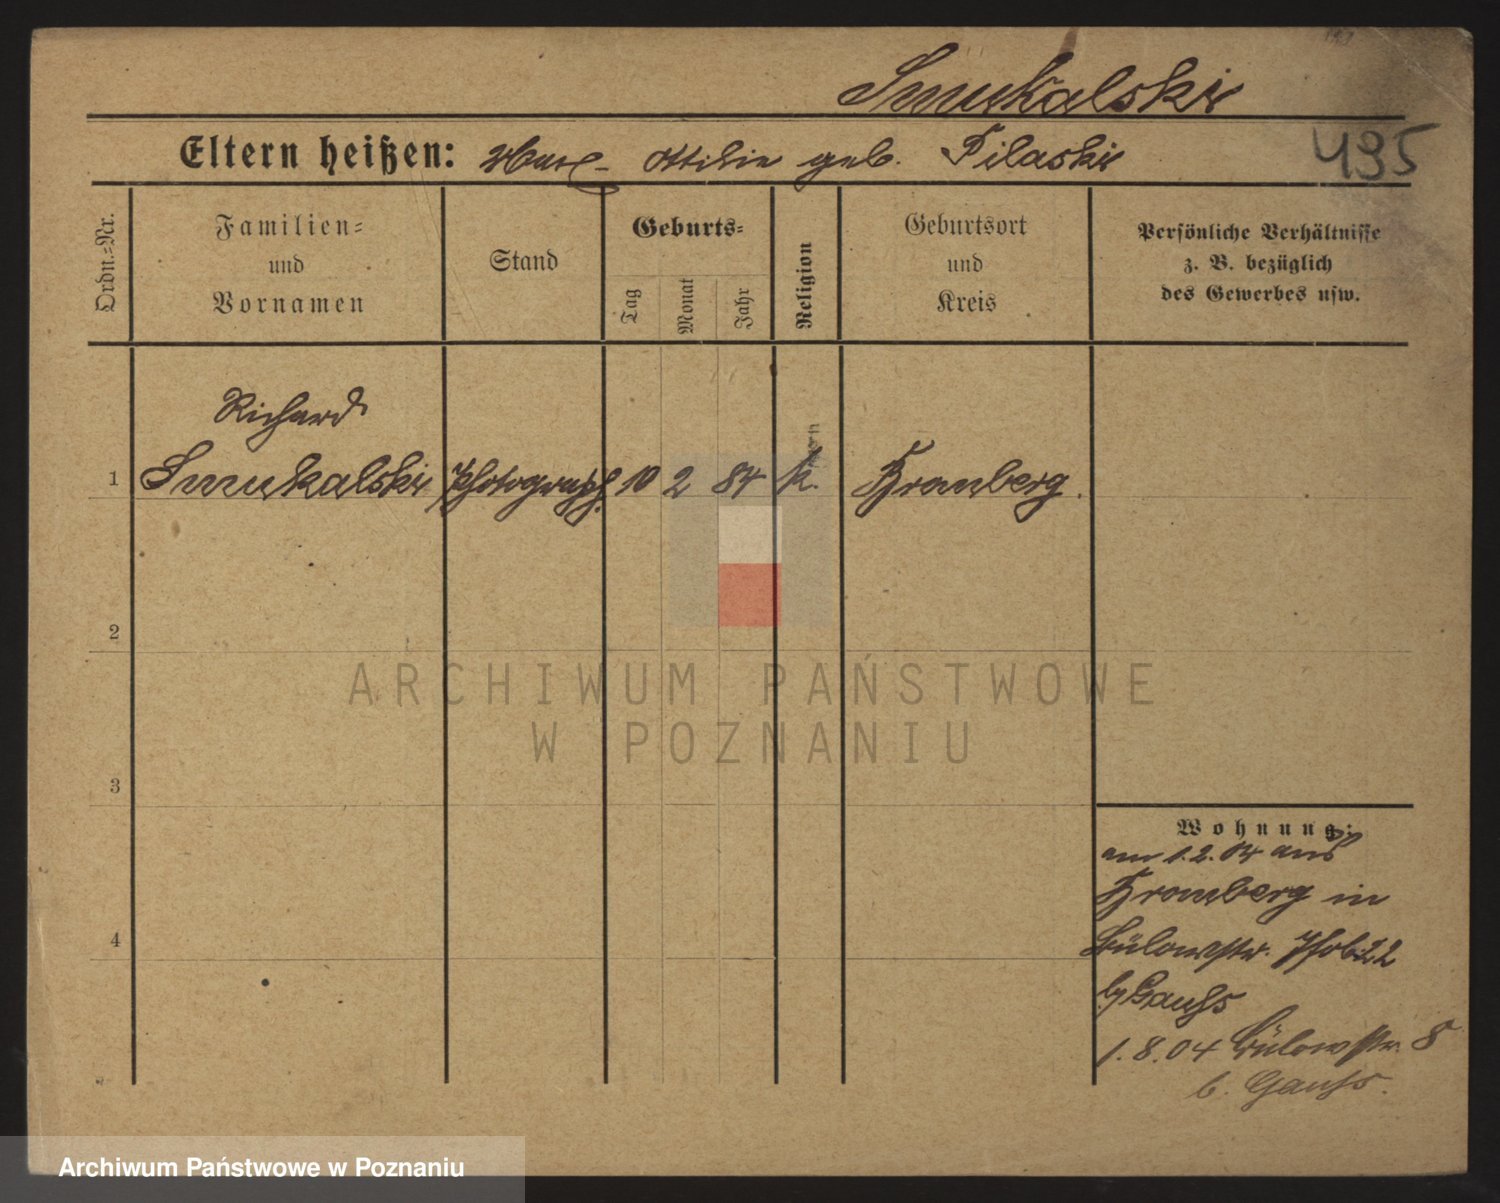 Smukalski
495
Eltern heißen: Max - Ottilie geb. Pilaski
Ordn.=Nr.
Familien=
und
Vornamen
Stand
Geburts=
Tag
Monat
Jahr
Religion
Geburtsort
und
Kreis
Persönliche Verhältnisse
z. B. bezüglich
des Gewerbes usw.
Richard
1 Smukalski Photograph. 10 2 84 k. Bromberg.
2
3
4
Wohnung:
am 1.2.04 aus
Bromberg in
Bülowstr. 22
b/
1.8.04 Bülowstr. 8
b.
ARCHIWUM PAŃSTWOWE
W POZNANIU
Archiwum Państwowe w Poznaniu